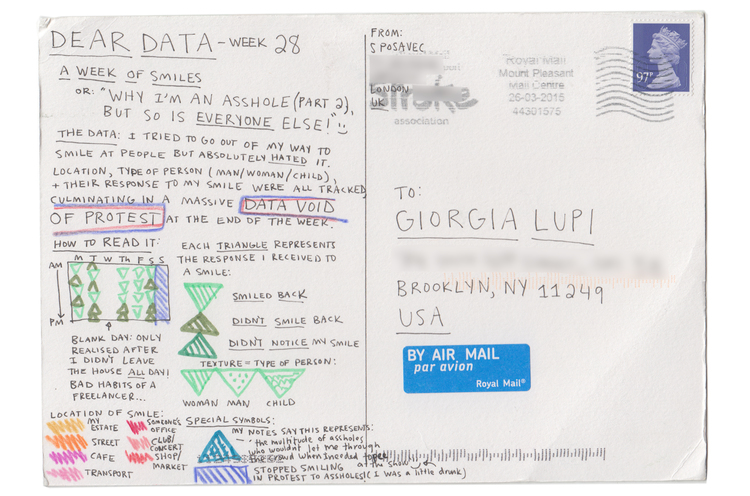 DEAR DATA - WEEK 28
A WEEK OF SMILES
OR: "WHY I'M AN ASSHOLE (PART 2),
BUT SO IS EVERYONE ELSE!"
THE DATA: I TRIED TO GO OUT OF MY WAY TO
SMILE AT PEOPLE BUT ABSOLUTELY HATED IT.
LOCATION, TYPE OF PERSON (MAN/WOMAN/CHILD),
+ THEIR RESPONSE TO MY SMILE WERE ALL TRACKED,
CULMINATING IN A MASSIVE DATA VOID
OF PROTEST AT THE END OF THE WEEK.
HOW TO READ IT:
M T W Th F S S
AM
PM
BLANK DAY: ONLY
REALISED AFTER
I DIDN'T LEAVE
THE HOUSE ALL DAY!
BAD HABITS OF A
FREELANCER...
EACH TRIANGLE REPRESENTS
THE RESPONSE I RECEIVED TO
A SMILE:
SMILED BACK
DIDN'T SMILE BACK
DIDN'T NOTICE MY SMILE
TEXTURE = TYPE OF PERSON:
WOMAN MAN CHILD
LOCATION OF SMILE:
MY ESTATE
STREET
CAFE
TRANSPORT
SOMEONE'S OFFICE
CLUB/CONCERT
SHOP/MARKET
SPECIAL SYMBOLS:
MY NOTES SAY THIS REPRESENTS:
"the multitude of assholes
who wouldn't let me through
crowd when I needed to pee
at the show"
(I was a little drunk)
STOPPED SMILING
IN PROTEST TO ASSHOLES
FROM:
S POSAVEC
LONDON
UK
Stroke
association
Royal Mail
Mount Pleasant
Mail Centre
26-03-2015
44301575
97P
TO:
GIORGIA LUPI
BROOKLYN, NY 11249
USA
BY AIR MAIL
par avion
Royal Mail®